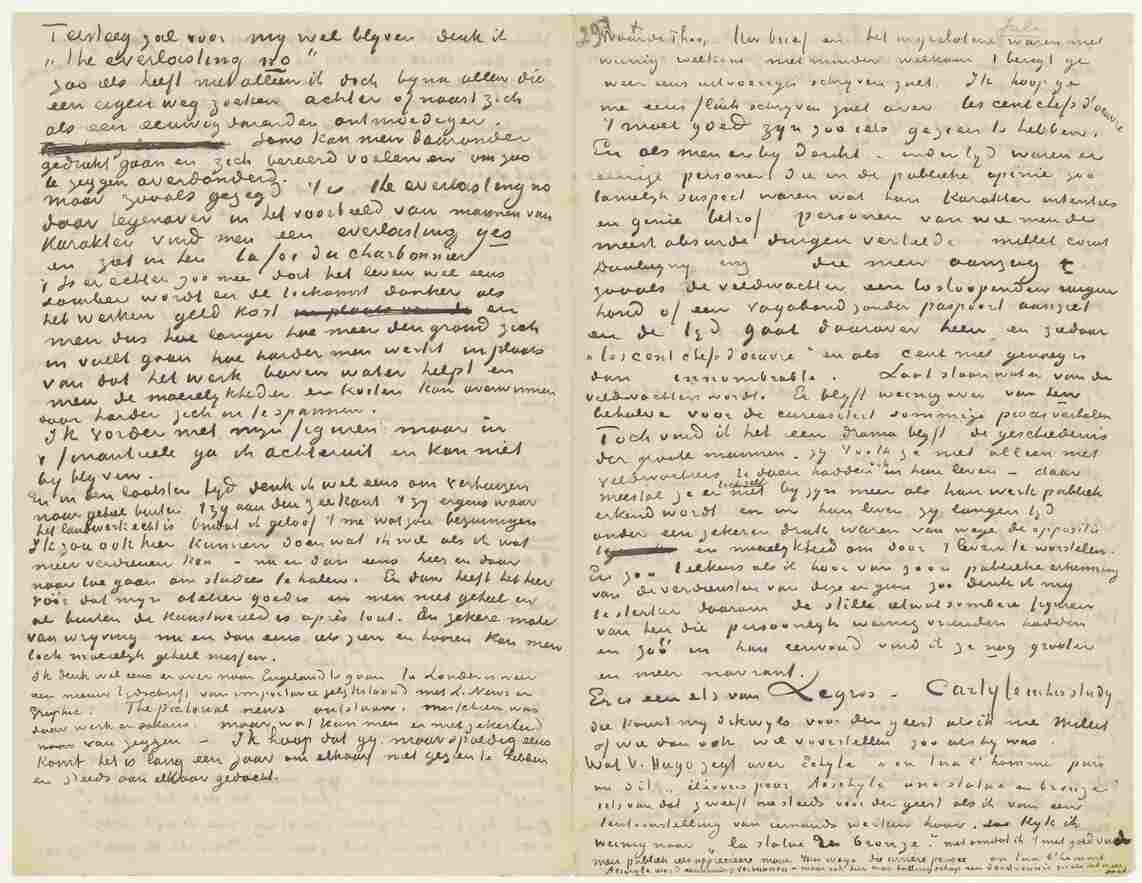 Tersteeg zal voor my wel blyven denk ik
„The everlasting no”
zoo als heeft niet alleen ik doch byna allen die
een eigen weg zoeken achter of naast zich
als een eeuwig durenden ontmoediger.
Soms kan men daaronder
gedrukt gaan en zich beroerd voelen en om zoo
te zeggen overdonderd.
maar zooals gezegd 't is the everlasting no
daar tegenover in het voorbeeld van mannen van
Karakter vind men een everlasting yes
en ziet in hen la foi du charbonnier
't Is er echter zoo mee dat het leven wel eens
somber wordt en de toekomst donker als
het werken geld kost en
men dus hoe langer hoe meer den grond zich
in voelt gaan hoe harder men werkt in plaats
van dat het werk boven water helpt en
men de moeielykheden en kosten kan overwinnen
door harder zich in te spannen.
Ik vorder met myn figuren maar in
't financieele ga ik achteruit en kan niet
by blyven.
En in den laatsten tyd denk ik wel eens om verhuizen
naar geheel buiten 't zy aan den zeekant 't zy ergens waar
het landwerk echt is omdat ik geloof 't me wat zou bezuinigen
Ik zou ook hier kunnen doen wat ik wil als ik wat
meer verdienen kon – nu en dan eens hier en daar
naar toe gaan om studies te halen. En dan heeft het hier
vóór dat myn atelier goed is en men niet geheel en
al buiten de Kunstwereld is après tout. Een zekere mate
van wryving nu en dan eens iets zien en hooren kan men
toch moeielyk geheel missen.
Ik denk wel eens er over naar Engeland te gaan In Londen is weer
een nieuw tydschrift van importance gelykstaand met L. News en
Graphic: The pictorial news ontstaan. misschien was
daar werk en salaris. maar wat kan men er met zekerheid
van zeggen – Ik hoop dat gy maar spoedig eens
komt het is lang een jaar om elkaar niet gezien te hebben
en steeds aan elkaar gedacht.
Waarde Theo, Uw brief en het ingeslotene waren niet
weinig welkom niet minder welkom 't berigt ge
weer eens uitvoeriger schryven zult. Ik hoop ge
me eens flink schryven zult over les cent chefs d'oeuvre
't moet goed zyn zoo iets gezien te hebben.
En als men er by denkt – indertyd waren er
eenige personen die in de publieke opinie zoo
tamelyk suspect waren wat hun karakter intenties
en genie betrof personen van wie men de
meest absurde dingen vertelde millet corot
Daubigny enz die men aanzag
zooals de veldwachter een losloopenden ruigen
hond of een vagabond zonder paspoort aanziet
en de tyd gaat daarover heen en ziedaar
„les cent chefs d'oeuvre” en als cent niet genoeg is
dan innombrable. Laat staan wat er van de
veldwachters wordt. Er blyft weinig over van hen
behalve voor de curiositeit sommige procesverbalen
Toch vind ik het een drama blyft de geschiedenis
der groote mannen. zy 't ook ze niet alleen met
veldwachters te doen hadden in hun leven – daar
meestal ze er zelf niet by zyn meer als hun werk publiek
erkend wordt en in hun leven zy langen tyd
onder een zekeren druk waren van wege de oppositie
en moeielykheid om door 't leven te worstelen.
En zoo telkens als ik hoor van zoon publieke erkenning
van de verdiensten van deze en gene zoo denk ik my
te sterker daarom de stille eenigzins sombere figuren
van hen die persoonlyk weinig vrienden hadden
en zoo in hun eenvoud vind ik ze nog grooter
en meer navrant.
Er is een ets van Legros – Carlyle in his study
die komt my dikwyls voor den geest als ik me Millet
of wie dan ook wil voorstellen zoo als hy was.
Wat V. Hugo zegt over Eschyle: „on tua l'homme puis
on dit élevons pour Aeschyle une statue en bronze”
iets van dat zweeft me steeds voor den geest als ik van een
tentoonstelling van iemands werken hoor. Kyk ik
weinig naar „la statue en bronze”. niet omdat ik 't niet goed vind
men publiek iets apprecieere maar van wege die arrière pensée on tua l'homme.